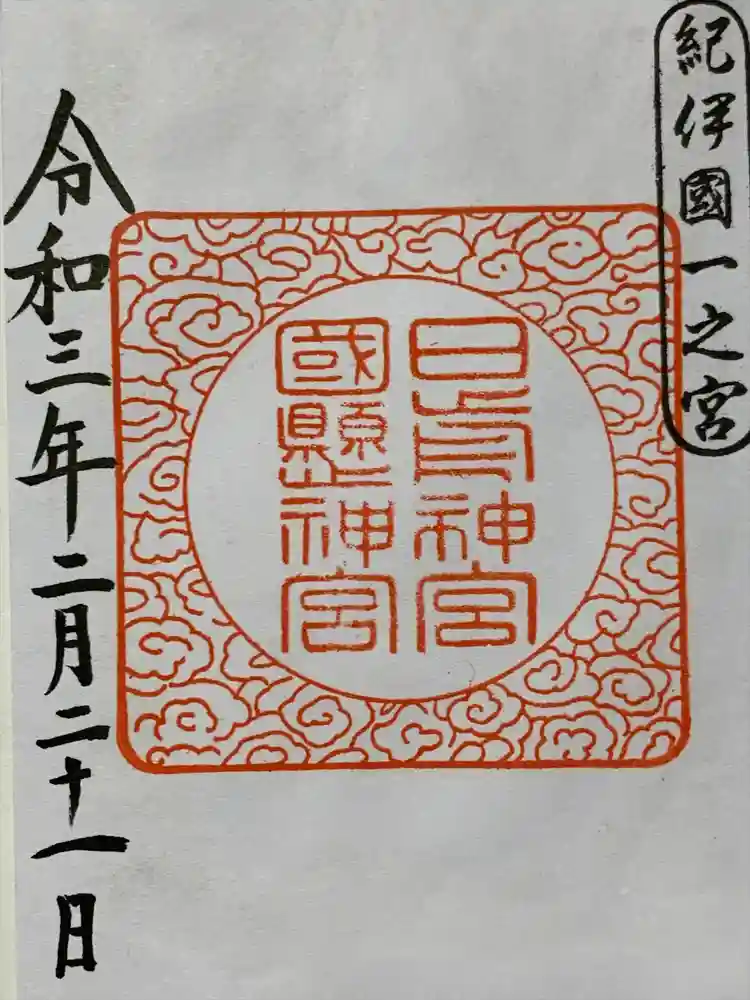 紀伊國一之宮
日前神宮
國懸神宮
令和三年二月二十一日